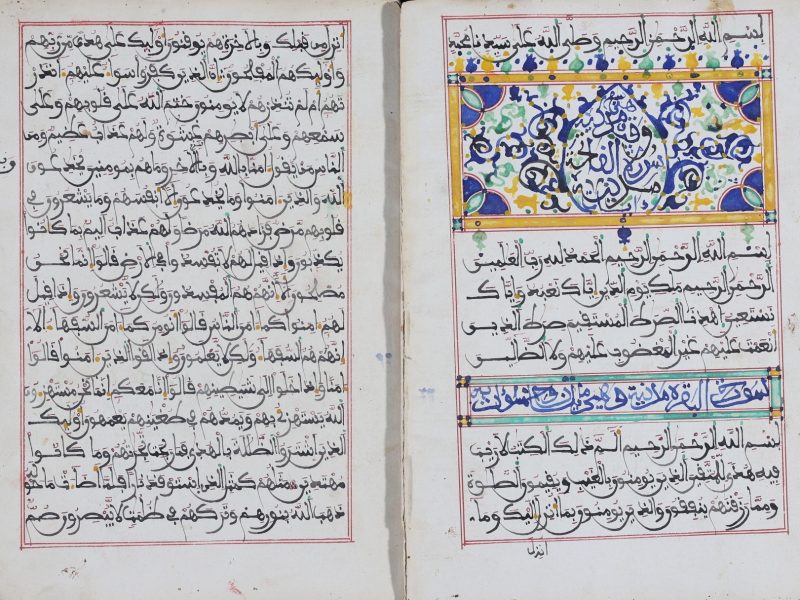 بسم الله الرحمن الرحيم وصلى الله على سيدنا
سورة الفاتحة
بسم الله الرحمن الرحيم الحمد لله رب العلمين
الرحمن الرحيم ملك يوم الدين إياك نعبد وإياك
نستعين اهدنا الصرط المستقيم صرط الذين
أنعمت عليهم غير المغضوب عليهم ولا الضالين
سورة البقرة مدنية وهي مايتان
بسم الله الرحمن الرحيم الم ذلك الكتب لا ريب
فيه هدى للمتقين الذين يومنون بالغيب ويقيمون الصلوة
ومما رزقنهم ينفقون والذين يومنون بما أنزل إليك وما
انزل
انزل من قبلك وبالاخرة هم يوقنون أوليك على هدى من ربهم
وأوليك هم المفلحون إن الذين كفروا سواء عليهم آنذر
تهم أم لم تنذرهم لا يومنون ختم الله على قلوبهم وعلى
سمعهم وعلى أبصرهم غشوة ولهم عذاب عظيم ومن
الناس من يقول امنا بالله وباليوم الاخر وما هم بمومنين يخدعون
الله والذين امنوا وما يخدعون إلا أنفسهم وما يشعرون في
قلوبهم مرض فزادهم الله مرضا ولهم عذاب أليم بما كانوا
يكذبون وإذا قيل لهم لا تفسدوا في الأرض قالوا إنما نحن
مصلحون ألا إنهم هم المفسدون ولكن لا يشعرون وإذا قيل
لهم امنوا كما امن الناس قالوا أنومن كما امن السفهاء ألا
إنهم هم السفهاء ولكن لا يعلمون وإذا لقوا الذين امنوا قالوا
امنا وإذا خلوا إلى شيطينهم قالوا إنا معكم إنما نحن مستهزءون
الله يستهزئ بهم ويمدهم في طغينهم يعمهون أوليك
الذين اشتروا الضللة بالهدى فما ربحت تجرتهم وما كانوا
مهتدين مثلهم كمثل الذي استوقد نارا فلما أضاءت ما حوله
ذهب الله بنورهم وتركهم في ظلمت لا يبصرون صم